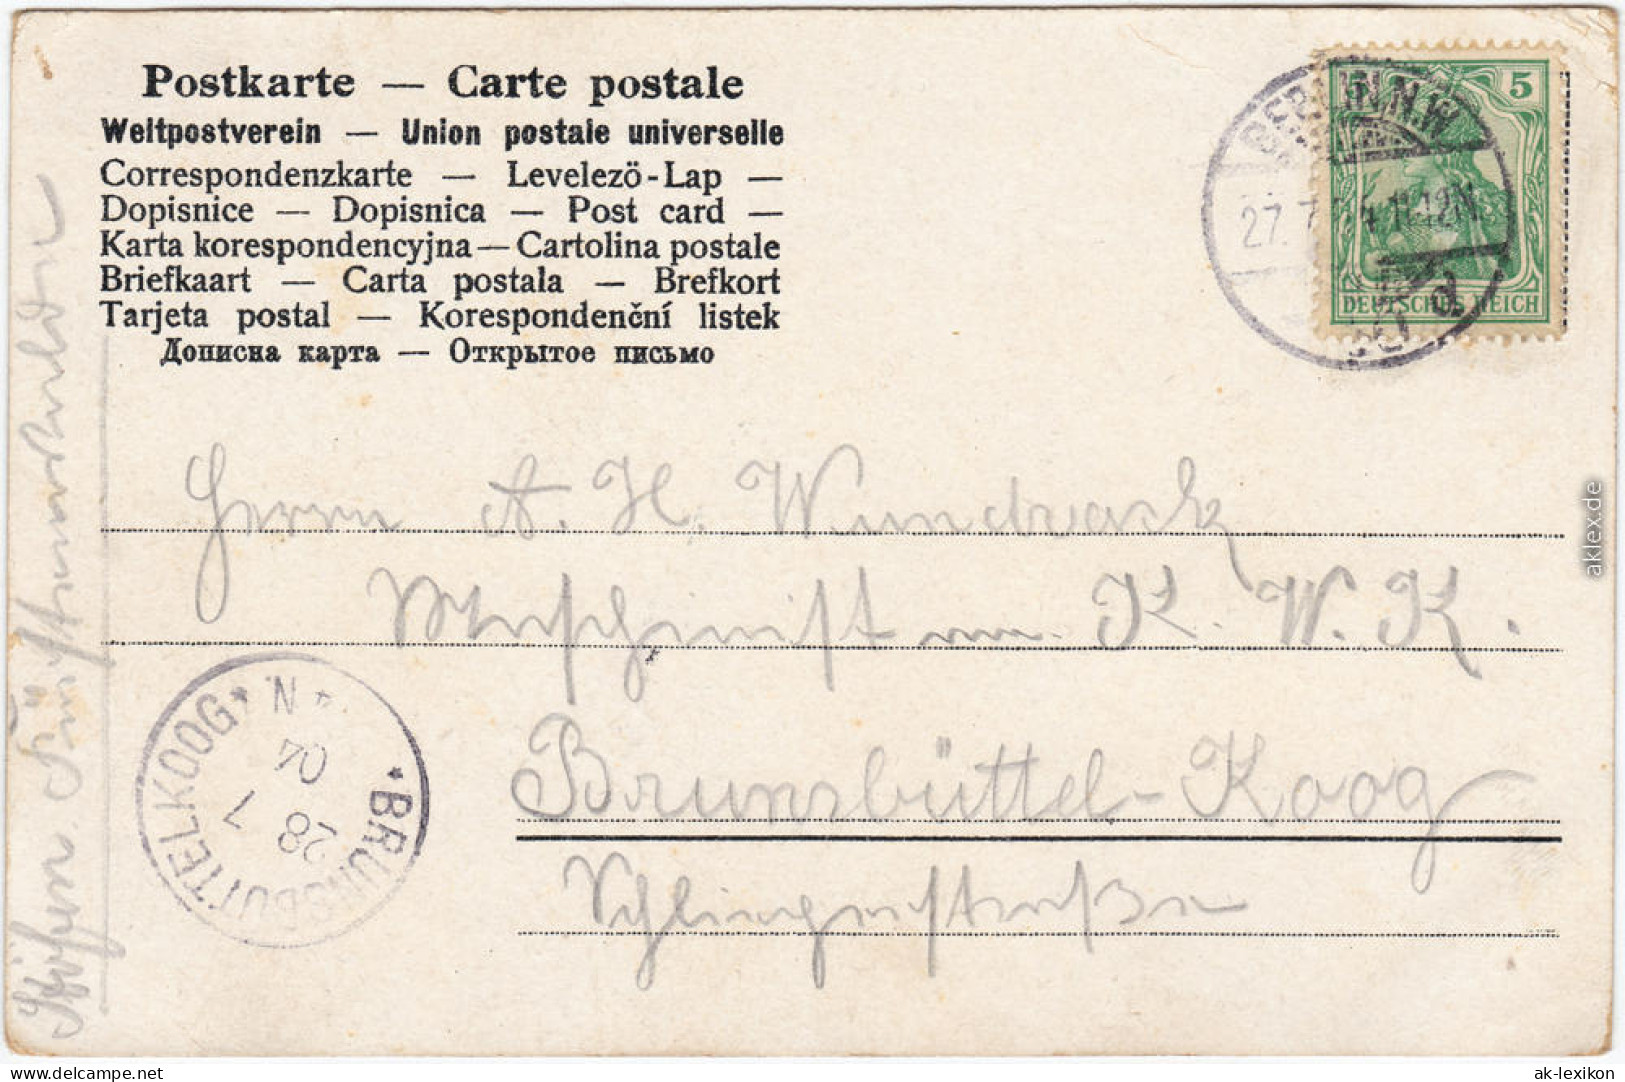 Postkarte — Carte postale
Weltpostverein — Union postale universelle
Correspondenzkarte — Levelezö-Lap —
Dopisnice — Dopisnica — Post card —
Karta korespondencyjna — Cartolina postale
Briefkaart — Carta postala — Brefkort
Tarjeta postal — Korespondenční listek
Дописна карта — Открытое письмо
5
DEUTSCHES REICH
BERLIN N.W
27. 7 4 11-12N
Herrn A. H. Wundrack
K. W. K.
Brunsbüttel-Koog
* BRUNSBÜTTELKOOG * N *
28 7
04
aklex.de
www.delcampe.net
ak-lexikon